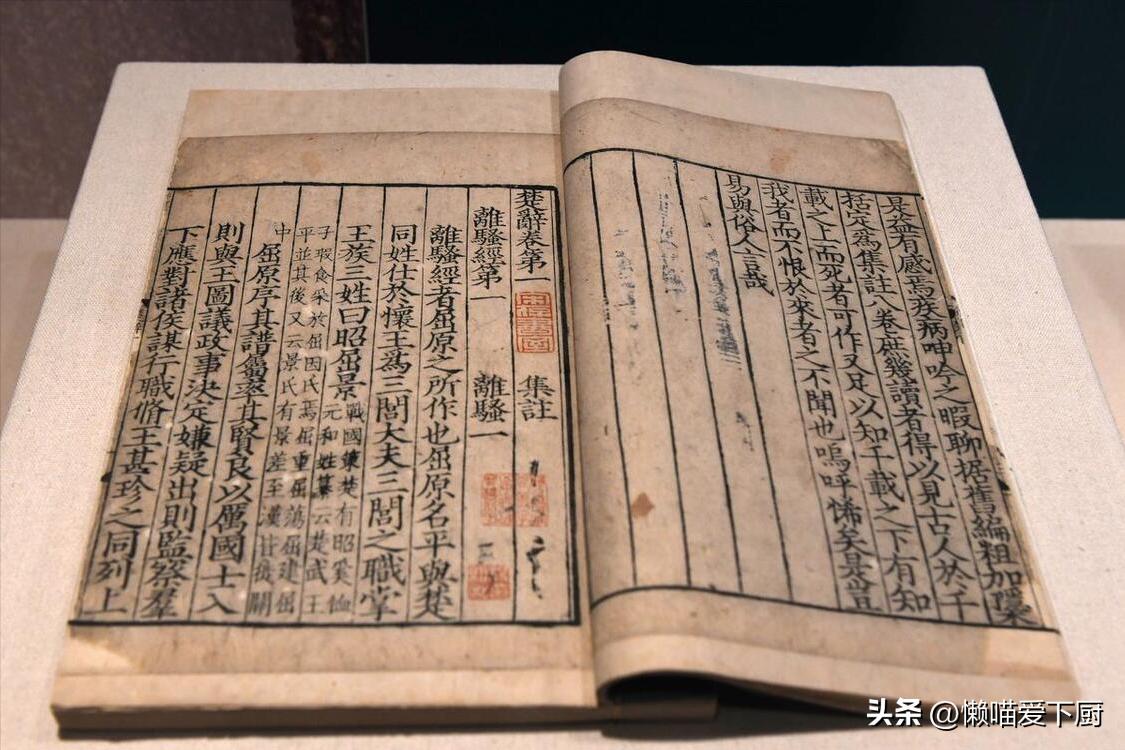 是益有感焉疾病呻吟之暇聊据舊編粗加隱
括定爲集註八卷庶幾讀者得以見古人於千
載之上而死者可作又足以知千載之下有知
我者而不恨於來者之不聞也嗚呼悕矣是豈
易與俗人言哉
楚辭卷第一 集註
離騷經第一 離騷一
離騷經者屈原之所作也屈原名平與楚
同姓仕於懷王爲三閭大夫三閭之職掌
王族三姓曰昭屈景
戰國策楚有昭奚恤
元和姓纂云楚武王
子瑕食采於屈因氏焉屈重屈蕩屈建屈
平並其後又云景氏有景差至漢皆徙關
中
屈原序其譜屬率其賢良以厲國士入
則與王圖議政事決定嫌疑出則監察羣
下應對諸侯謀行職脩王甚珍之同列上
头条 @懒喵爱下厨